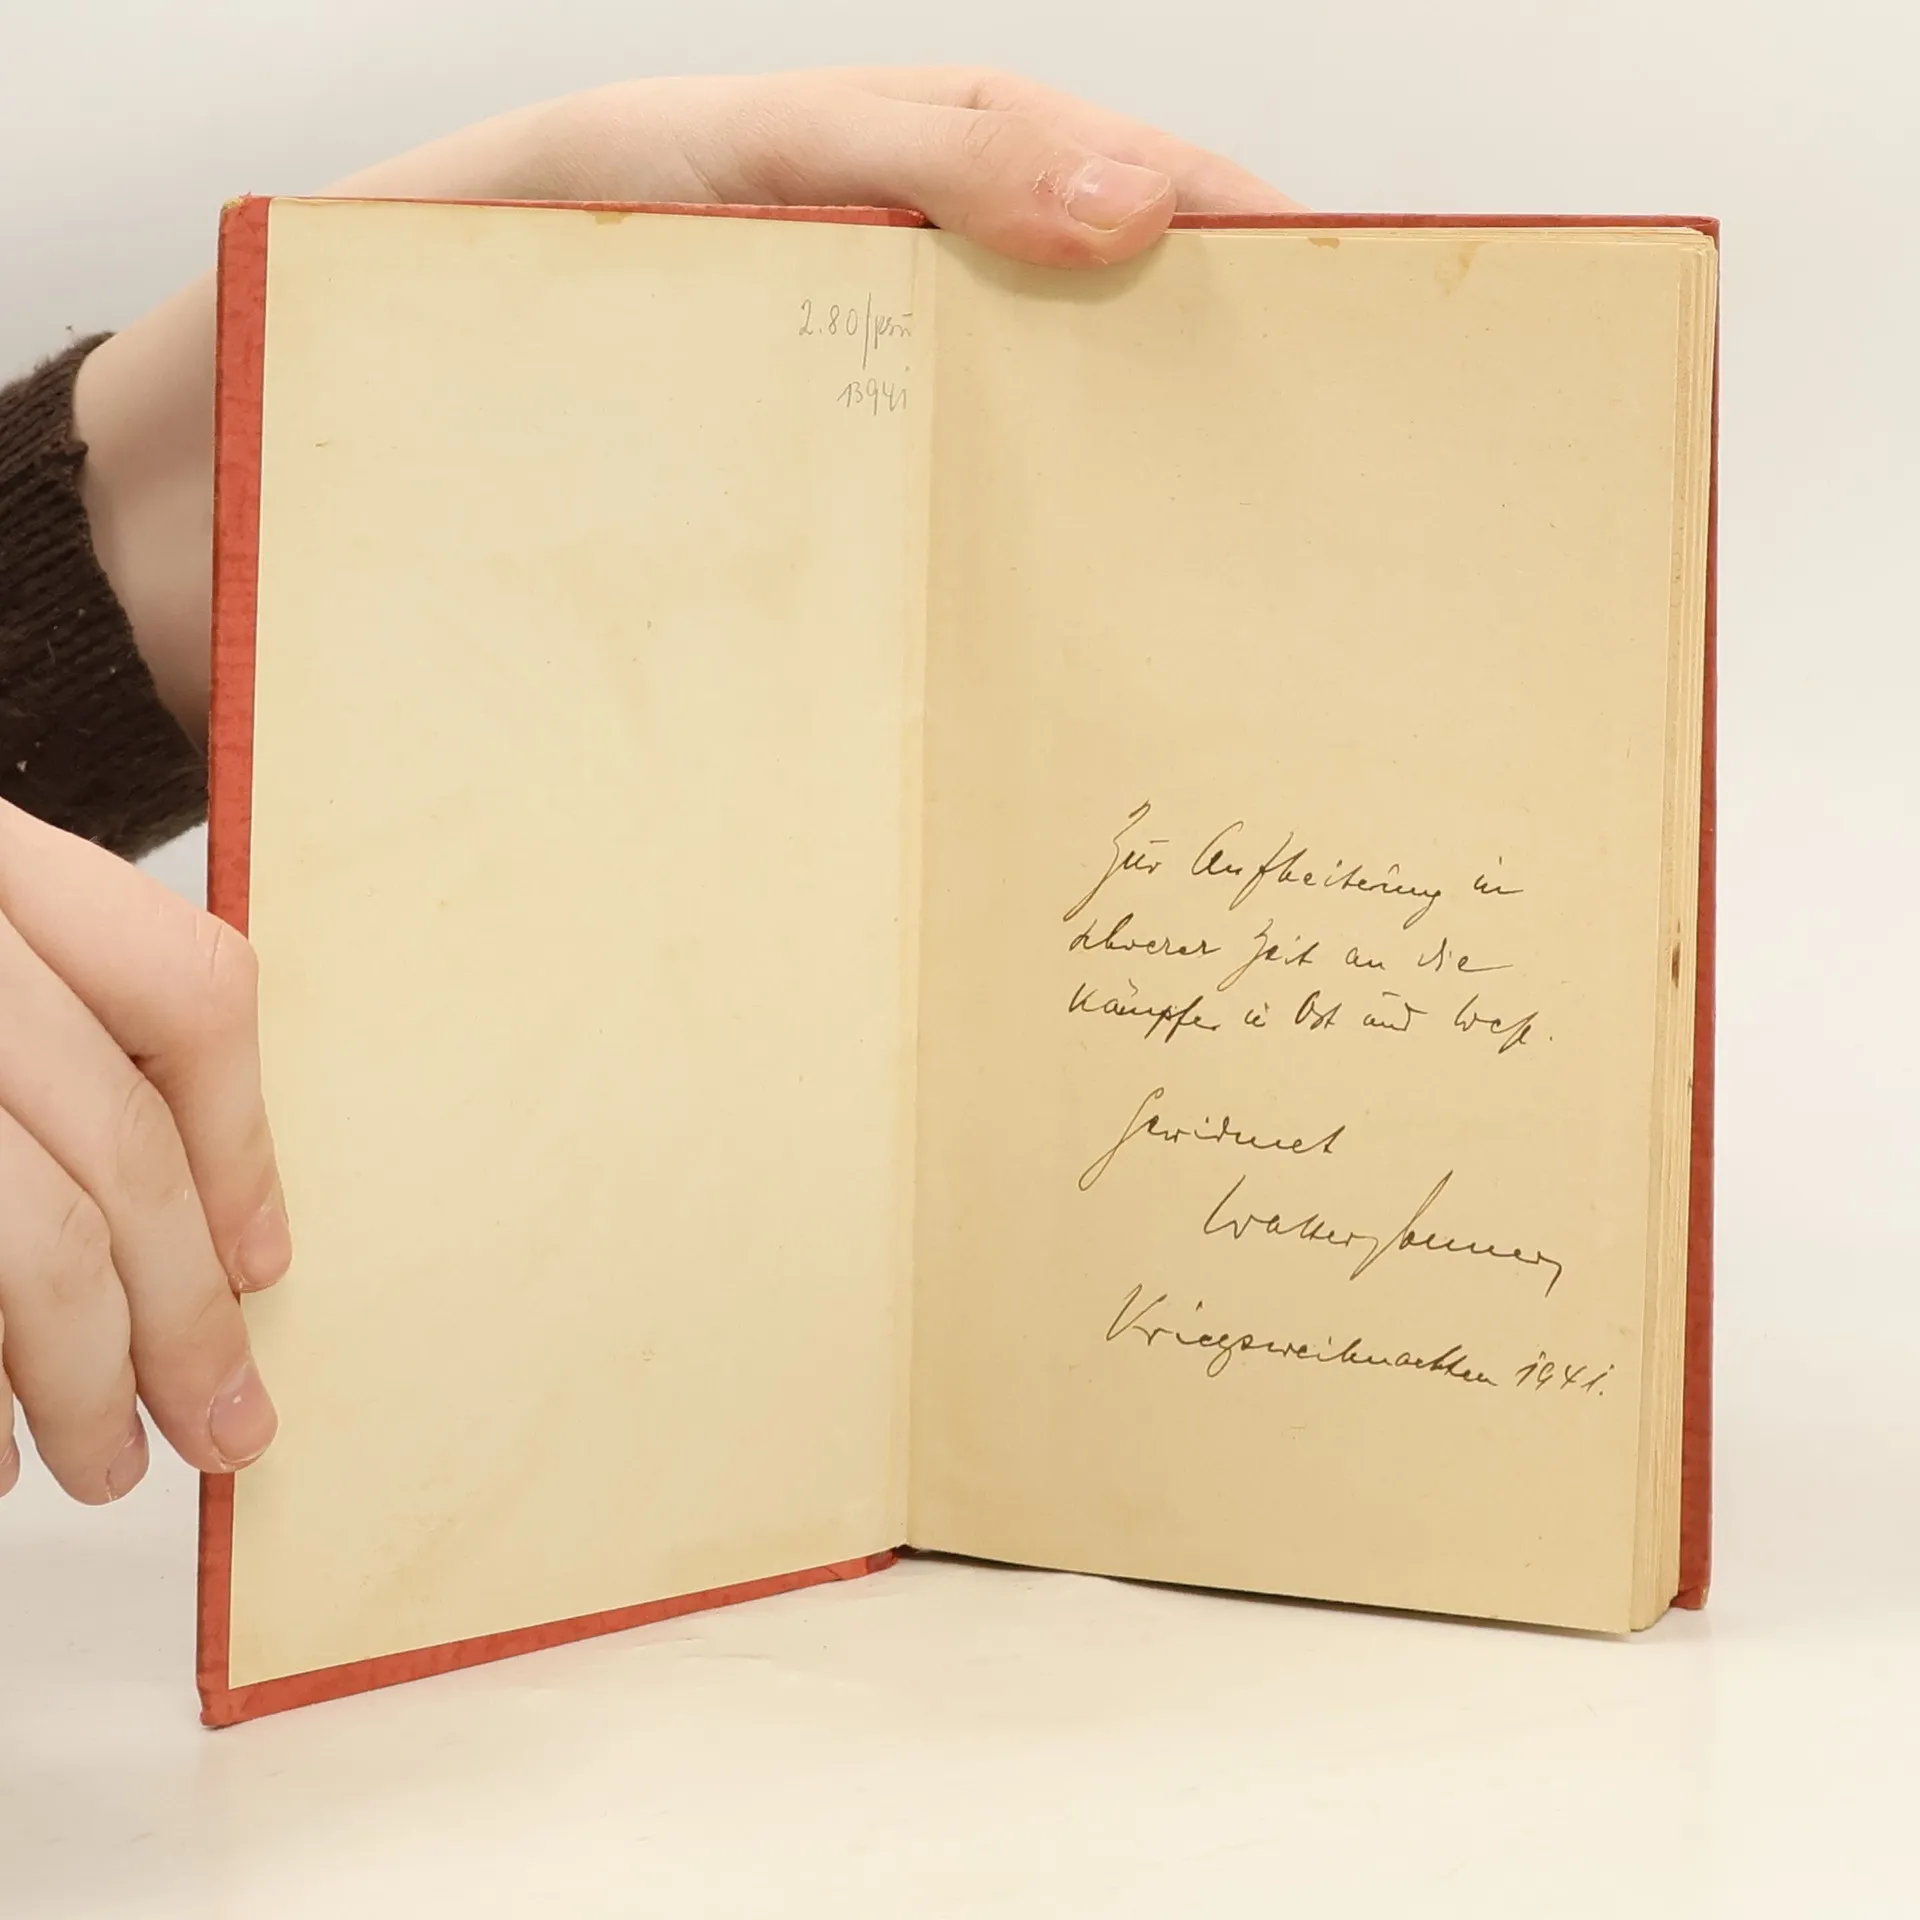 2.80/
Zur Aufheiterung in
schwerer Zeit an die
Kämpfer in Ost und West.
Gewidmet
Walter
Kriegsweihnachten 1941.